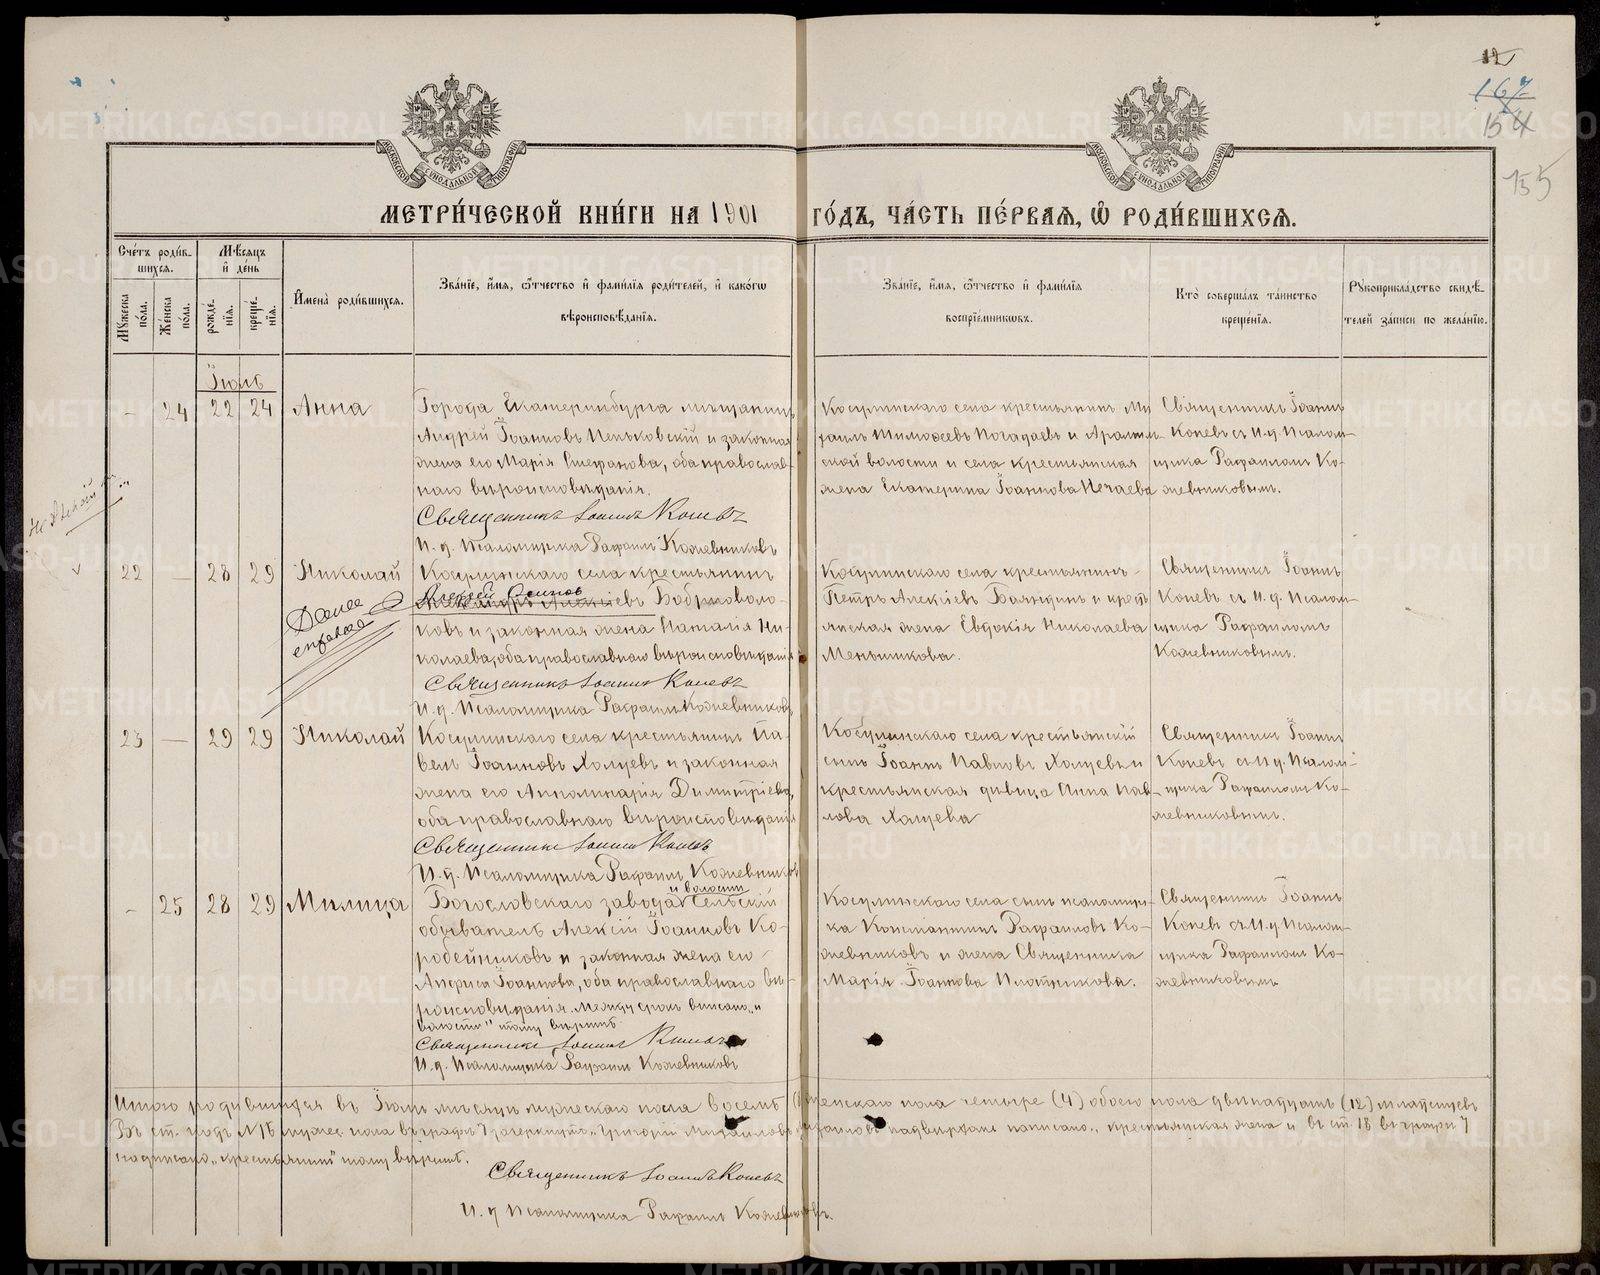 12
167
154
155
МЕТРИ́ЧЕСКОЙ КНИ́ГИ НА 1901 ГО́ДЪ, ЧА́СТЬ ПЕ́РВАѦ, Ѿ РОДИ́ВШИХСѦ.
Сче́тъ роди́в-
шихсѧ.
Мѣ́сѧцъ
и҆ де́нь
Мꙋ́жеска по́ла.
Же́нска по́ла.
рожде́-
нїѧ.
креще́-
нїѧ.
И҆мена̀ роди́вшихсѧ.
Зва́нїе, и҆́мѧ, ѻ҆́тчество и҆ фами́лїѧ роди́телей, и҆ како́гѡ
вѣроисповѣ́данїѧ.
Зва́нїе, и҆́мѧ, ѻ҆́тчество и҆ фами́лїѧ
воспрїе́мникѡвъ.
Кто̀ соверша́лъ та́инство
креще́нїѧ.
Рꙋкоприкла́дство свидѣ́-
телей за́писи по жела́нїю.
Іюль
- 24 22 24 Анна
Города Екатеринбурга мѣщанинъ
Андрей Іоанновъ Пеньковскій и законная
жена его Марія Стефанова, оба православ-
наго вѣроисповѣданія.
Священникъ Іоаннъ Коневъ
И. д. Псаломщика Рафаилъ Кожевниковъ
Косулинскаго села крестьянинъ Ми
хаилъ Тимофеевъ Погадаевъ и Арамиль-
ской волости и села крестьянская
жена Екатерина Іоаннова Нечаева
Священникъ Іоаннъ
Коневъ съ И. д. Псалом-
щика Рафаиломъ Ко-
жевниковымъ.
22 — 28 29 Николай
Далее
Косулинскаго села крестьянинъ
Алексей Осиповъ
Боброволо-
ковъ и законная жена Наталія Ни-
колаева, оба православнаго вѣроисповѣданія
Священникъ Іоаннъ Коневъ
И. д. Псаломщика Рафаилъ Кожевниковъ
Косулинскаго села крестьянинъ
Петръ Алексіевъ и крест
янская жена Евдокія Николаева
Меньшикова.
Священникъ Іоаннъ
Коневъ съ И. д. Псалом-
щика Рафаиломъ
Кожевниковымъ.
23 — 29 29 Николай
Косулинскаго села крестьянинъ Па-
велъ Іоанновъ Халуевъ и законная
жена его Апполинарія Димитріева,
оба православнаго вѣроисповѣданія
Священникъ Іоаннъ Коневъ
И. д. Псаломщика Рафаилъ Кожевниковъ
Косулинскаго села крестьянскій
сынъ Іоаннъ Павловъ Халуевъ и
крестьянская дѣвица Анна Пав-
лова Халуева
Священникъ Іоаннъ
Коневъ съ И. д. Псалом-
щика Рафаиломъ Ко-
жевниковымъ.
- 25 28 29 Милица
и волости
Богословскаго завода сельскій
обыватель Алексій Іоанновъ Ко-
родейниковъ и законная жена его
Анфиса Іоаннова, оба православнаго вѣ-
роисповѣданія. Между строкъ вписано „и
волости" тому вѣрить.
Священникъ Іоаннъ Коневъ
И. д. Псаломщика Рафаилъ Кожевниковъ
Косулинскаго села сынъ псаломщи-
ка Константинъ Рафаиловъ Ко-
жевниковъ и жена Священника
Марія Іоаннова Плотникова.
Священникъ Іоаннъ
Коневъ съ И. д. Псалом-
щика Рафаиломъ Ко-
жевниковымъ
Итого родившихся въ Іюлѣ мѣсяцѣ мужескаго пола восемь женскаго пола четыре (4) обоего пола двѣнадцать (12) младенцевъ
Въ ст. подъ № 16 мужес. пола въ графѣ 7 зачеркнуто „Григорій Михаиловъ надъ написано „крестьянская жена и въ ст. 18 въ графѣ 7
надписано „крестьянинъ" тому вѣрить.
Священникъ Іоаннъ Коневъ
И. д Псаломщика Рафаилъ Кожевниковъ.
METRIKI.GASO-URAL.RU